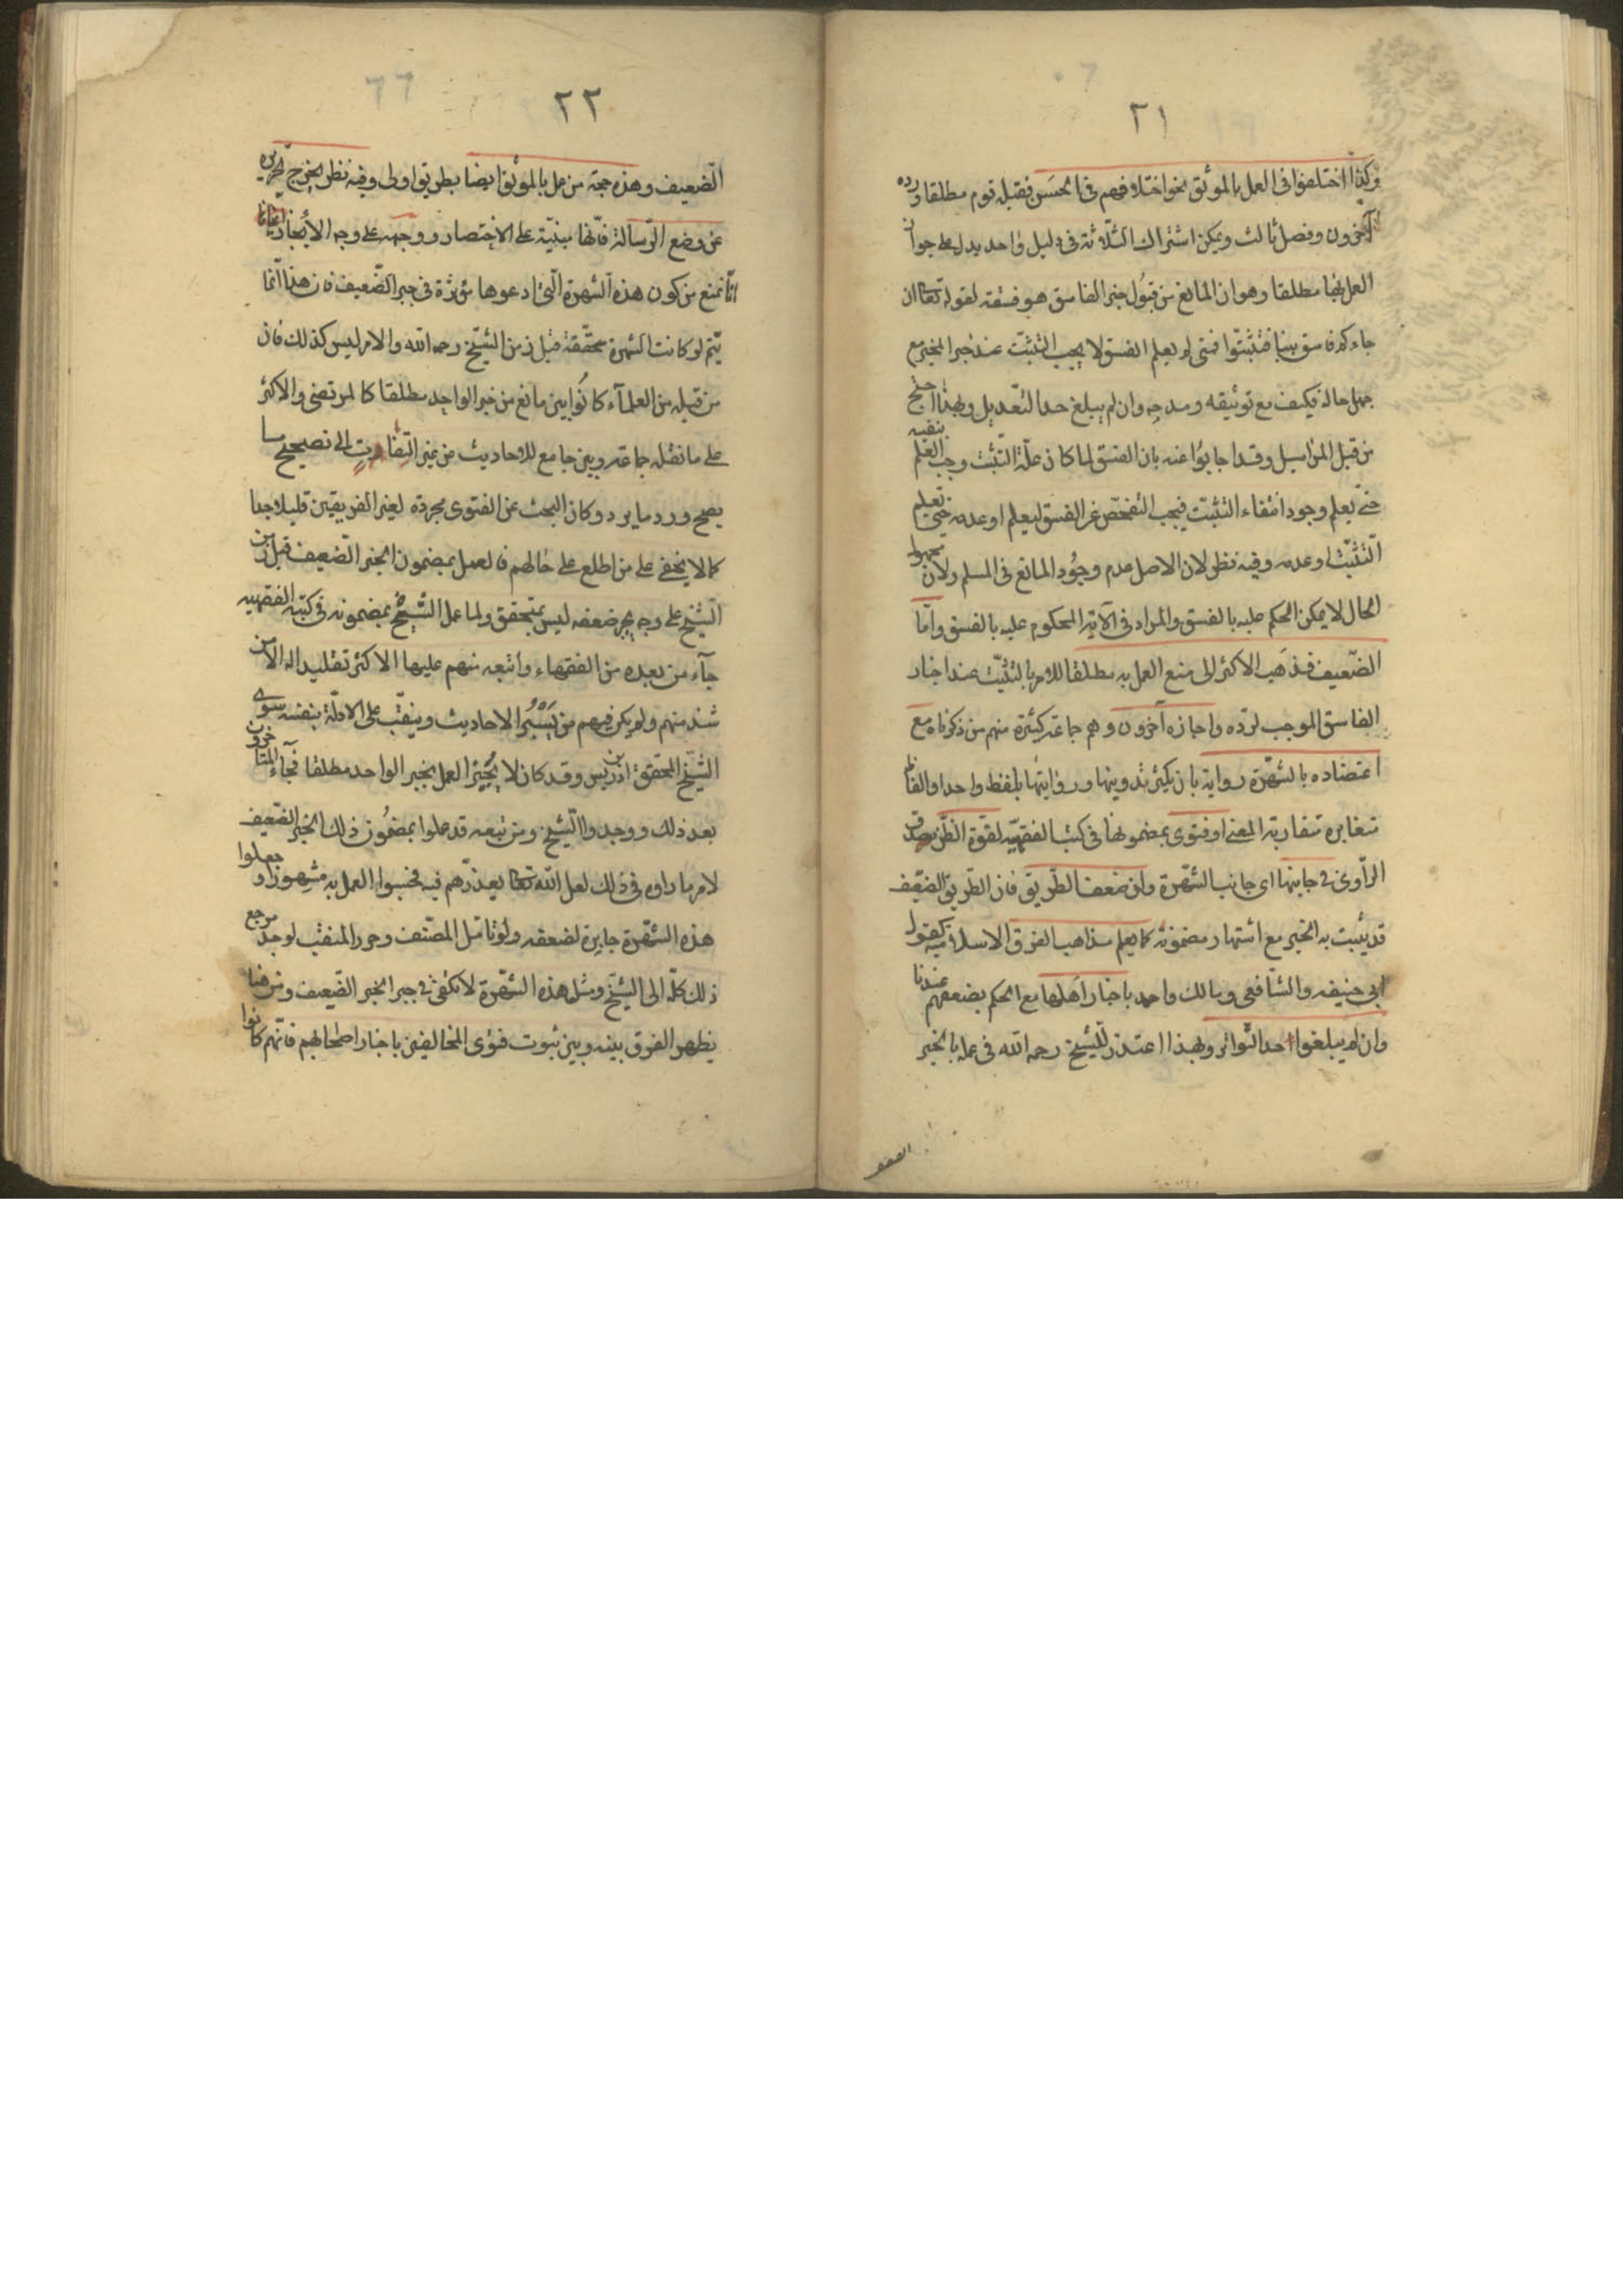 ٢١
وكذا اختلفوا في العمل بالموثق نحو اختلافهم في الحسن فقبله قوم مطلقا ورده
آخرون وفصل ثالث ويمكن اشتراك الثلاثة في دليل واحد يدل على جواز
العمل بها مطلقا وهو ان المانع من قبول خبر الفاسق هو فسقه لقوله تعالى ان
جاءكم فاسق بنبا فتثبتوا فمتى لم يعلم الفسق لا يجب التثبت عند خبر المخبر مع
جهل حاله فكيف مع توثيقه ومدحه وان لم يبلغ حد التعديل وبهذا احتج
من قبل المراسيل وقد اجابوا عنه بان الفسق لما كان علة التثبت وجب العلم بنفيه
حتى يعلم وجود انتفاء التثبت فيجب التفحص عن الفسق ليعلم او عدمه حتى يعلم
التثبت او عدمه وفيه نظر لان الاصل عدم وجود المانع في المسلم ولان مجهول
الحال لا يمكن الحكم عليه بالفسق والمراد في الآية المحكوم عليه بالفسق واما
الضعيف فذهب الاكثر الى منع العمل به مطلقا للامر بالتثبت عند اخبار
الفاسق الموجب لرده واجازه آخرون وهم جماعة كثيرة منهم من ذكرناه مع
اعتضاده بالشهرة رواية بان يكثر تدوينها وروايتها بلفظ واحد او الفاظ
متغايرة متقاربة المعنى او فتوى بمضمونها في كتب الفقهية لقوة الظن بصدق
الراوي في جانبها اي جانب الشهرة وان ضعف الطريق فان الطريق الضعيف
قد يثبت به الخبر مع اشتهار مضمونه كما يعلم مذاهب الفرق الاسلامية كقول
ابي حنيفه والشافعي ومالك واحمد باخبار اهلها مع الحكم بضعفهم عندنا
وان لم يبلغوا حد التواتر وبهذا اعتذر للشيخ رحمه الله في عمله بالخبر
الضعيف
٢٢
الضعيف وهذه حجة من عمل بالموثق ايضا بطريق اولى وفيه نظر يخرج تحريره
عن وضع الرسالة فانها مبنية على الاختصار ووجهه على وجه الايجاز
انا نمنع من كون هذه الشهرة التي ادعوها مؤثرة في جبر الضعيف فان هذا انما
يتم لو كانت الشهرة محققة قبل زمن الشيخ رحمه الله والامر ليس كذلك فان
من قبله من العلماء كانوا بين مانع من خبر الواحد مطلقا كالمرتضى والاكثر
على ما نقله جماعة وبين جامع للاحاديث من غير التفات الى تصحيح ما
يصح ورد ما يرد وكان البحث عن الفتوى مجردة لغير الفريقين قليلا جدا
كما لا يخفى على من اطلع على حالهم فالعمل بمضمون الخبر الضعيف قبل زمن
الشيخ على وجه يجبر ضعفه ليس بمتحقق ولما عمل الشيخ بمضمونه في كتبه الفقهيه
جاء من بعده من الفقهاء واتبعه منهم عليها الاكثر تقليدا له الا من
شذ منهم ولم يكن فيهم من يسبر الاحاديث وينقب على الادلة بنفسه سوى
الشيخ المحقق بن ادريس وقد كان لا يجيز العمل بخبر الواحد مطلقا فجاء المتاخرون
بعد ذلك ووجدوا الشيخ ومن تبعه قد عملوا بمضمون ذلك الخبر الضعيف
لامر ما راوه في ذلك لعل الله تعالى يعذرهم فيه فحسبوا العمل به مشهورا وجعلوا
هذه الشهرة جابرة لضعفه ولو تامل المصنف وحرر المنقب لوجد مرجع
ذلك كله الى الشيخ ومثل هذه الشهرة لا تكفي في جبر الخبر الضعيف ومن هنا
يظهر الفرق بينه وبين ثبوت فتوى المخالفين باخبار اصحابهم فانهم كانوا